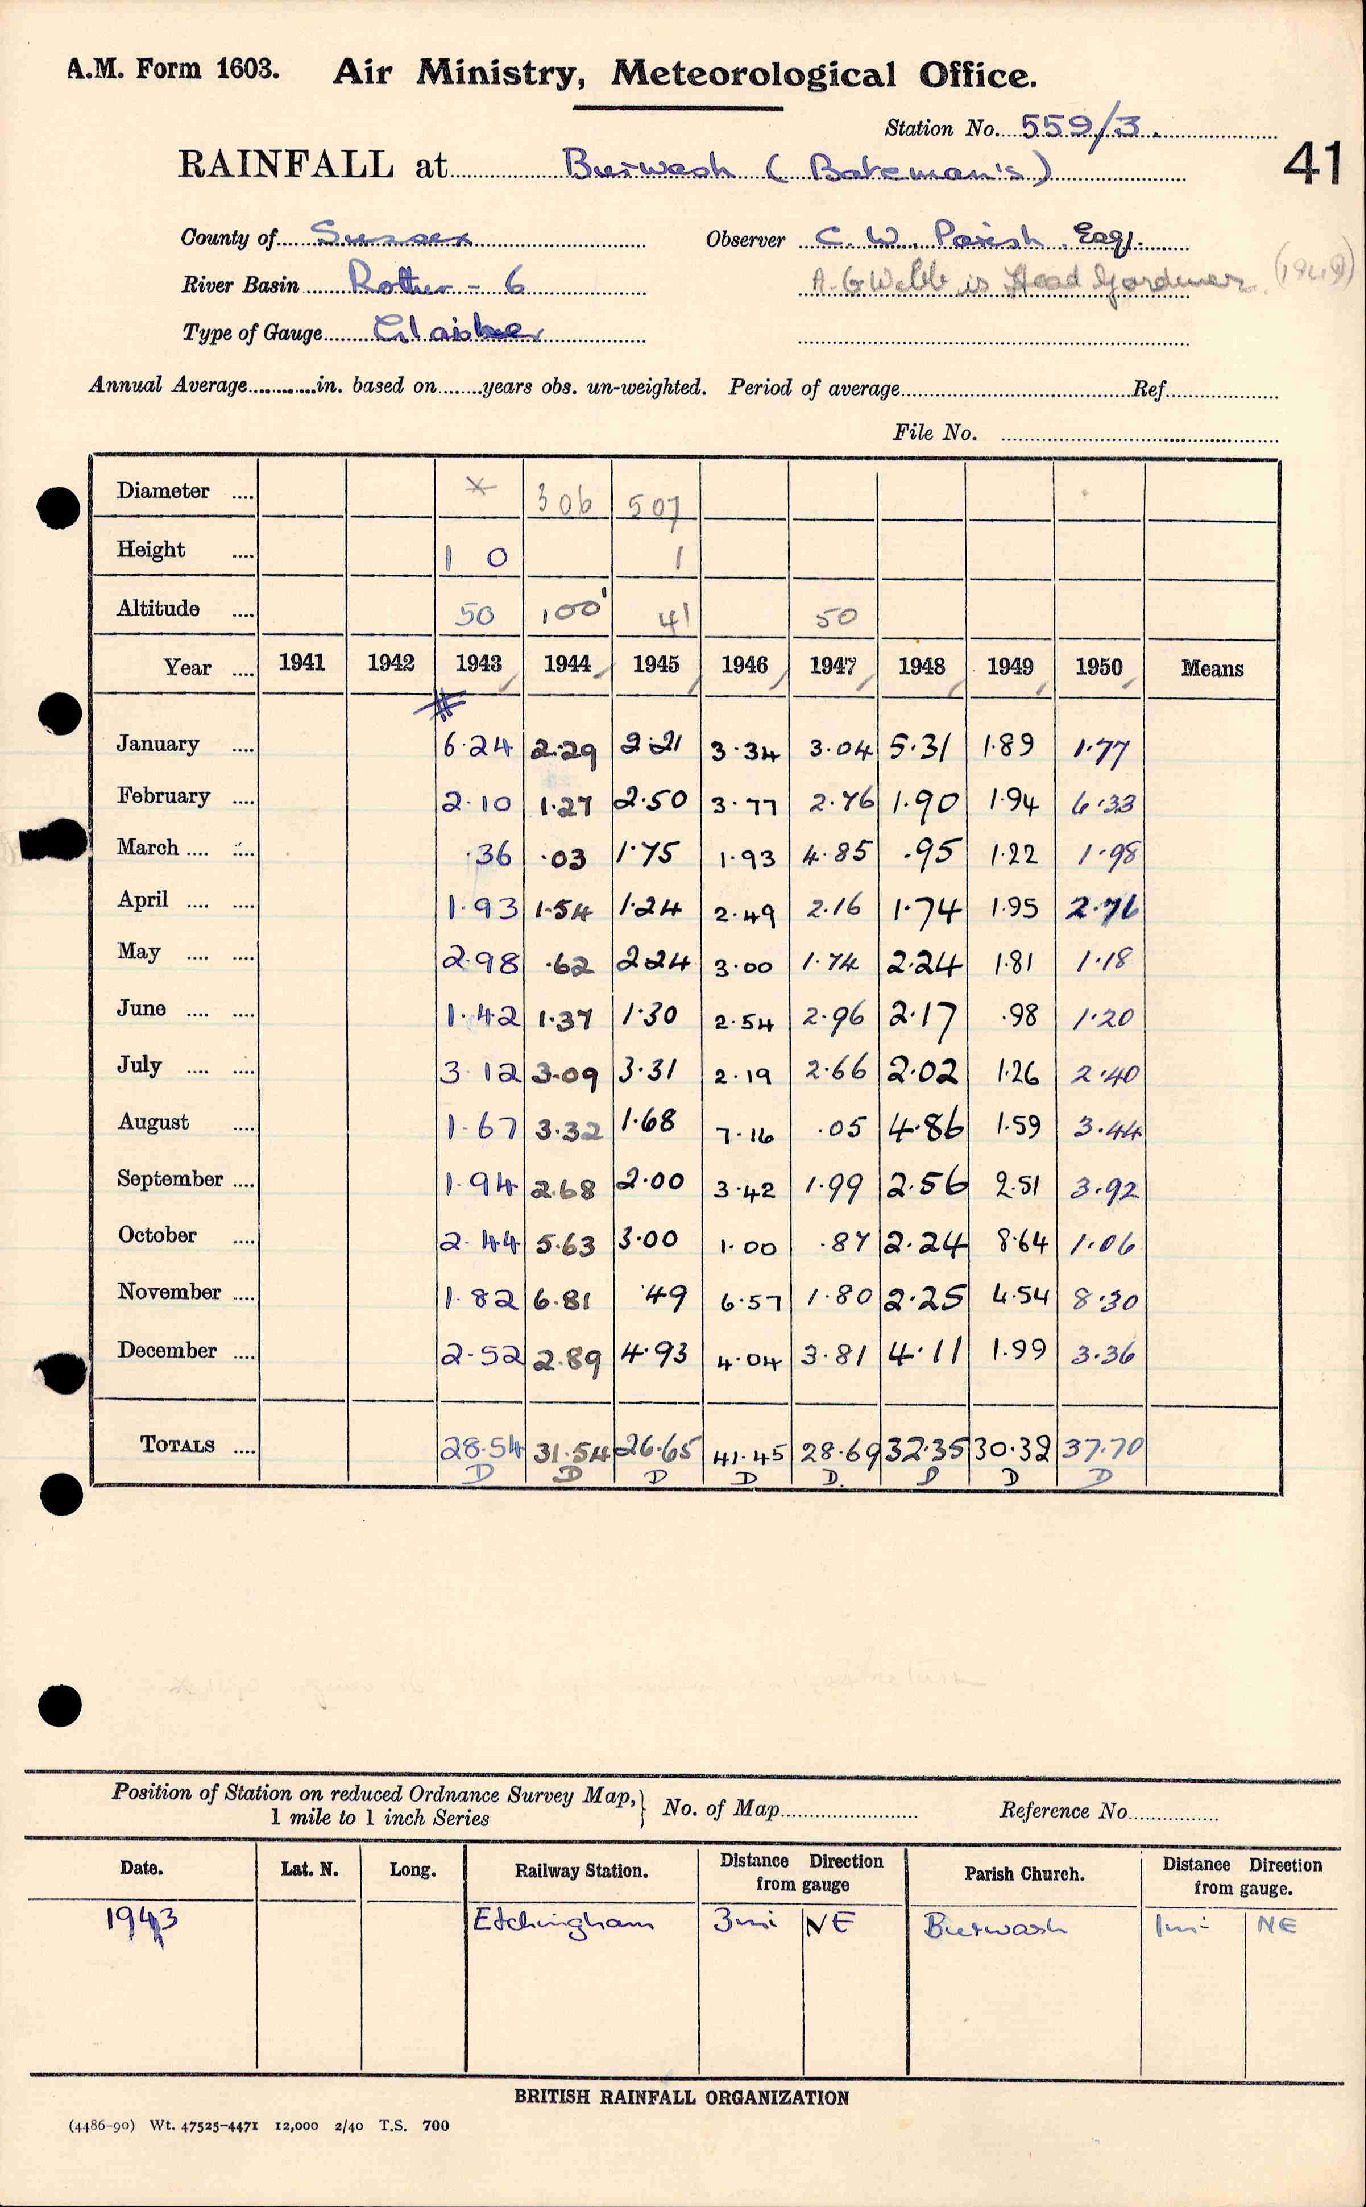 A.M. Form 1603. Air Ministry, Meteorological Office.
Station No. 559/3.
41
RAINFALL at Burwash (Bateman's)
County of Sussex Observer C. W. Parish, Esq.
River Basin Rother - 6 A. G Webb is Head Gardener. (1949)
Type of Gauge Glaisher
Annual Average in. based on years obs. un-weighted. Period of average Ref
File No.
Diameter .... X 306 507
Height .... 1 0 1
Altitude .... 50 100' 41 50
Year .... 1941 1942 1943 1944 1945 1946 1947 1948 1949 1950 Means
January .... 6.24 2.29 2.21 3.34 3.04 5.31 1.89 1.77
February .... 2.10 1.27 2.50 3.77 2.76 1.90 1.94 6.33
March .... .... .36 .03 1.75 1.93 4.85 .95 1.22 1.98
April .... .... 1.93 1.54 1.24 2.49 2.16 1.74 1.95 2.76
May .... .... 2.98 .62 2.24 3.00 1.74 2.24 1.81 1.18
June .... .... 1.42 1.37 1.30 2.54 2.96 2.17 .98 1.20
July .... .... 3.12 3.09 3.31 2.19 2.66 2.02 1.26 2.40
August .... 1.67 3.32 1.68 7.16 .05 4.86 1.59 3.44
September .... 1.94 2.68 2.00 3.42 1.99 2.56 2.51 3.92
October .... 2.44 5.63 3.00 1.00 .87 2.24 8.64 1.06
November .... 1.82 6.81 .49 6.57 1.80 2.25 4.54 8.30
December .... 2.52 2.89 4.93 4.04 3.81 4.11 1.99 3.36
TOTALS .... 28.54 31.54 26.65 41.45 28.69 32.35 30.32 37.70
D D D D D. D D D
Position of Station on reduced Ordnance Survey Map, 1 mile to 1 inch Series } No. of Map Reference No
Date. Lat. N. Long. Railway Station. Distance Direction from gauge Parish Church. Distance Direction from gauge.
1943 Etchingham 3mi NE Burwash 1mi NE
BRITISH RAINFALL ORGANIZATION
(4486-90) Wt. 47525-4471 12,000 2/40 T.S. 700